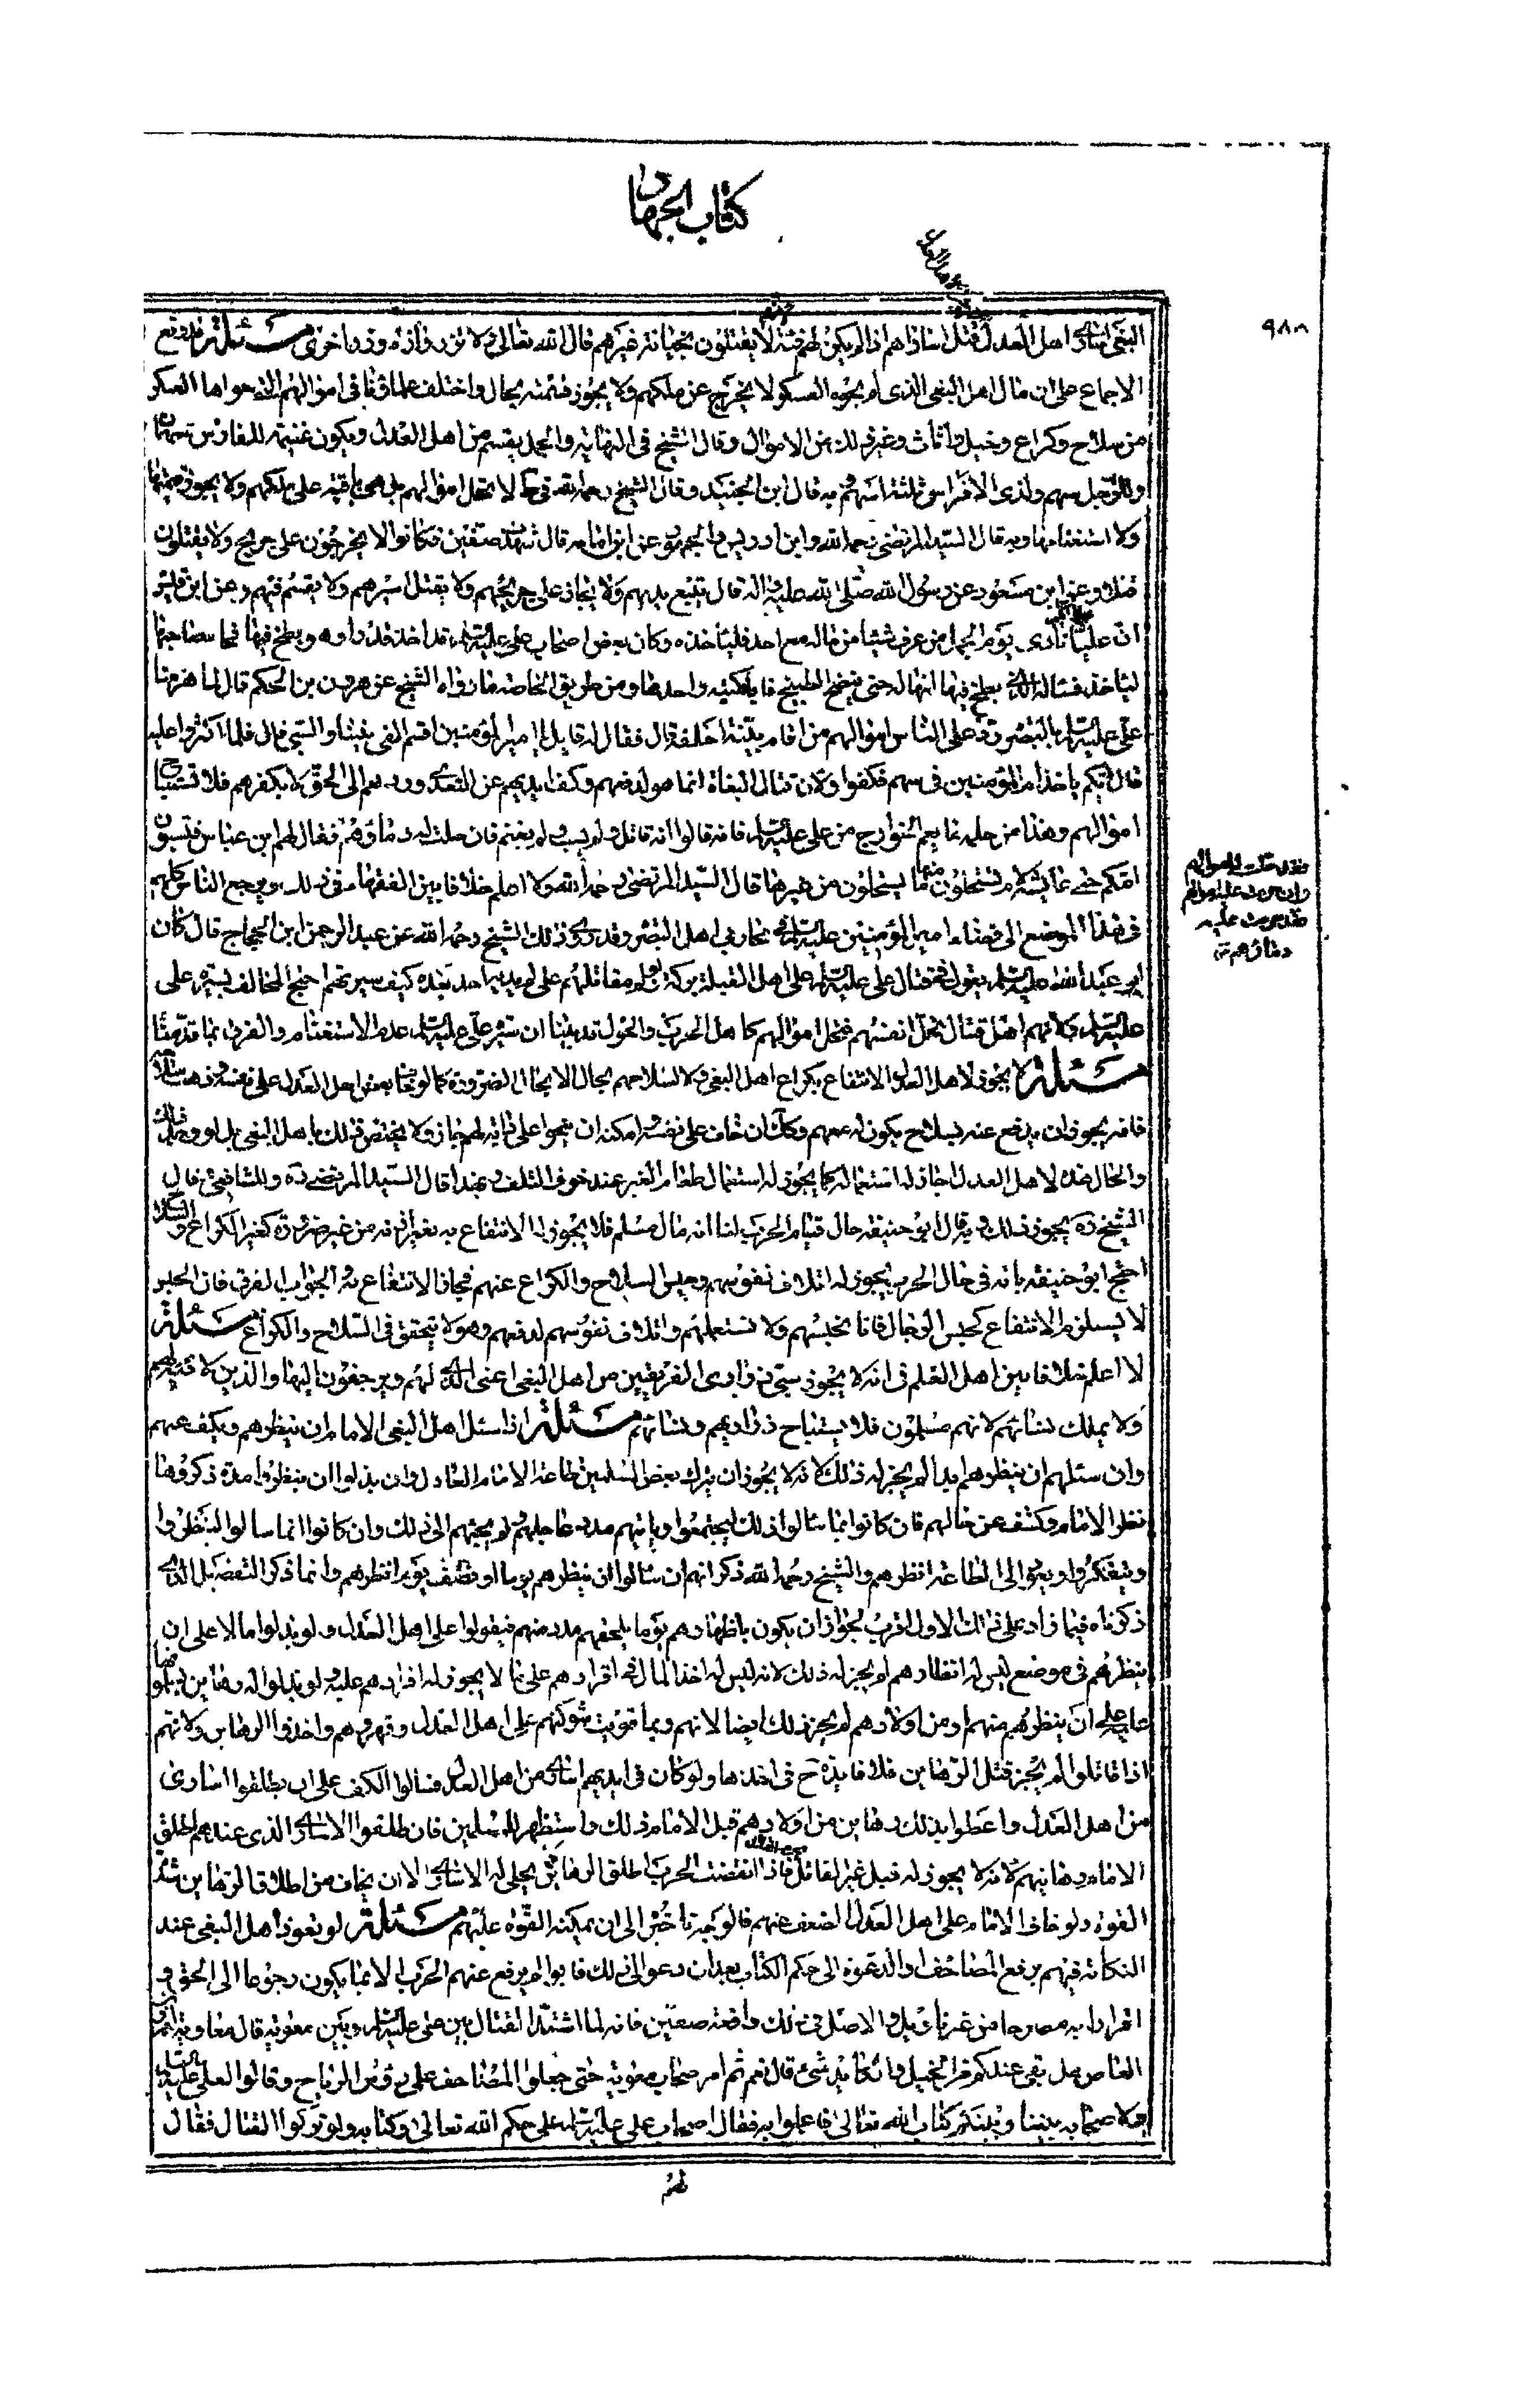 كتاب الجهاد
٩٨٨
البغى اسارى اهل العدل قتل اساراهم اذا لم يكن لهم فئة لا يقتلون بخيانة غيرهم قال الله تعالى ولا تزر وازرة وزر اخرى مسئلة قد وقع
الاجماع على ان مال اهل البغى الذى لم يحوه العسكر لا يخرج عن ملكهم ولا يجوز قسمته بحال واختلف علماؤنا فى اموالهم التى حواها العسكر
من سلاح وكراع وخيل واثاث وغير ذلك من الاموال وقال الشيخ فى النهاية والجمل يقسم من اهل العدل ويكون غنيمة للفارس سهمان
وللراجل سهم ولذى الافراس ثلثة اسهم وبه قال ابن الجنيد وقال الشيخ رحمه الله فى لا تحل اموالهم بل هى باقية على ملكهم ولا يجوز قسمتها
ولا استغنامها وبه قال السيد المرتضى رحمه الله وابن ادريس والجمهور عن ابى امامة قال شهدت صفين فكانوا لا يجيزون على جريح ولا يقتلون
وعن ابن مسعود عن رسول الله صلى الله عليه واله قال يتبع مدبرهم ولا يجاز على جريحهم ولا يقتل اسيرهم ولا يقسم فيئهم وعن
ان عليا نادى يوم الجمل من عرف شيئا من ماله مع احد فلياخذه وكان بعض اصحاب على عليه السلم قد اخذ قدرا وهو يطبخ فيها فجاء صاحبها
لياخذ فساله الذى يطبخ فيها امهاله حتى ينضج الطبيخ فابى فكبه واخذها ومن طريق الخاصة ما رواه الشيخ عن مروان بن الحكم قال لما هزمنا
على عليه السلم بالبصرة رد على الناس اموالهم من اقام بينة احلفه قال فقال له قايل يا امير المؤمنين اقسم الفىء بيننا والسبى قال فلما اكثروا عليه
قال ايكم ياخذ ام المؤمنين فى سهمه فكفوا ولان قتال البغاة انما هو لدفعهم وكف ايديهم عن التعدى وردهم الى الحق لا بكفرهم فلا تستباح
اموالهم وهذا من جملة ما نقم الخوارج من على عليه السلم فانه قالوا انه قاتل ولم يسب ولم يغنم فان حلت له دماؤهم فقال لهم ابن عباس افتسبون
امكم عايشة ام تستحلون منها ما يستحلون من غيرها قال السيد المرتضى رحمه الله ولا اعلم خلافا بين الفقهاء فى ذلك ويرجع الناس كلهم
فى هذا الموضع الى قضاء امير المؤمنين عليه السلم فى محاربى اهل البصرة وقد روى ذلك الشيخ رحمه الله عن عبد الرحمن ابن الحجاج قال كان
ابو عبد الله عليه السلم يقول فى قتال على عليه السلم على اهل القبلة بركة ولو لم يقاتلهم على لم يدر احد بعده كيف يسير فيهم احتج المخالف بسيرة على
عليه السلم ولانهم اهل قتال تحل انفسهم فتحل اموالهم كاهل الحرب والاول قد بينا ان سيرة على عليه السلم عدم الاستغنام والفرق ما قدمناه
مسئلة لا يجوز لاهل العدل الانتفاع بكراع اهل البغى ولا بسلاحهم بحال الا بحال الضرورة كما لو خاف بعض اهل العدل على نفسه وذهب سلاحه
فانه يجوز ان يدفع عنه بسلاح يكون لهم وكذا ان خاف على نفسه وامكنه ان ينجو على دابة لهم جاز ولا يختص ذلك باهل البغى بل لو وجد ذلك
والحال هذه لاهل العدل جاز له استعماله كما يجوز له استعمال طعام الغير عند خوف التلف وبهذا قال السيد المرتضى ره والشافعى قال
الشيخ ره يجوز ذلك وبه قال ابو حنيفة حال قيام الحرب لنا انه مال مسلم فلا يجوز الانتفاع به بغير اذنه من غير ضرورة كغير الكراع والسلاح
احتج ابو حنيفة بانه فى حال الحرب يجوز له اتلاف نفوسهم وحبس السلاح والكراع عنهم فجاز الانتفاع به والجواب الفرق فان الحبس
لا يستلزم الانتفاع كحبس الرجال فانا نحبسهم ولا نستعملهم واتلاف نفوسهم لدفعهم وهو لا يتحقق فى السلاح والكراع مسئلة
لا اعلم خلافا بين اهل العلم فى انه لا يجوز سبى ذرارى الفريقين من اهل البغى اعنى الذى لهم يرجعون اليها والذين لا فئة لهم
ولا يملك نسائهم لانهم مسلمون فلا يستباح ذراريهم ونسائهم مسئلة اذا سئل اهل البغى الامام ان ينظرهم ويكف عنهم
وان سئلهم ان ينظرهم ابدا لم يجز له ذلك لانه لا يجوز ان يترك بعض المسلمين طاعة الامام العادل وان بذلوا ان ينظروا مدة ذكروها
نظر الامام وكشف عن حالهم فان كانوا انما سالوا ذلك ليجتمعوا وياتيهم مدد عاجلهم ولم يجبهم الى ذلك وان كانوا انما سالوا لينظروا
ويتفكروا ويعودوا الى الطاعة انظرهم والشيخ رحمه الله ذكر انهم ان سالوا ان ينظرهم يوما او نصف يوم انظرهم وانما ذكر التفصيل الذى
ذكرناه فيما زاد على ذلك الاول اقرب لجواز ان يكون بانظارهم يوما يلحقهم مدد منهم فيقووا على اهل العدل ولو بذلوا مالا على ان
ينظرهم فى موضع ليس له انظارهم لم يجز له ذلك لانه ليس له اخذ المال فى اقرارهم على ما لا يجوز له اقرارهم عليه ولو بذلوا له رهاين
على ان ينظرهم منهم او من اولادهم لم يجز ذلك ايضا لانهم ربما قويت شوكتهم على اهل العدل وقهروهم واخذوا الرهاين ولانهم
اذا قاتلوا لم يجز قتل الرهاين فلا فايدة ح فى اخذها ولو كان فى ايديهم اسارى من اهل العدل فسالوا الكف على ان يطلقوا اسارى
من اهل العدل واعطوا بذلك رهاين من اولادهم قبل الامام ذلك واستظهر للمسلمين فان اطلقوا الاسارى الذى عندهم اطلق
الامام رهاينهم لانه لا يجوز له قتل غير القاتل فاذا انقضت الحرب اطلق الرهاين يخلى له الاسارى الا ان يخاف من اطلاق الرهاين شدة
القوة ولو خاف الامام على اهل العدل الضعف عنهم فالوجه تاخير الى ان يمكنه القوة عليهم مسئلة لو تعوذ اهل البغى عند
النكاية فيهم برفع المصاحف والدعوة الى حكم الكتاب بعد ان دعوا الى ذلك فابوا لم يرفع عنهم الحرب الا بما يكون رجوعا الى الحق و
اقرارا به مصرحا من غير تاويل والاصل فى ذلك واقعة صفين فانه لما اشتد القتال بين على عليه السلم وبين معوية قال معاوية لعمرو بن
العاص هل بقى عندكم من الحيل والمكايد شىء قال نعم ثم امر صحاب معوية حتى جعلوا المصاحف على رؤس الرماح وقالوا لعلى عليه السلم
ولاصحابه بيننا وبينكم كتاب الله تعالى فاعملوا به فقال اصحاب على عليه السلم على حكم الله تعالى وكتابه ولو تركوا القتال فقال
فقد حلت لى اموالهم
وان حرمت على اموالهم
فقد حرمت عليه
دماؤهم
لهم